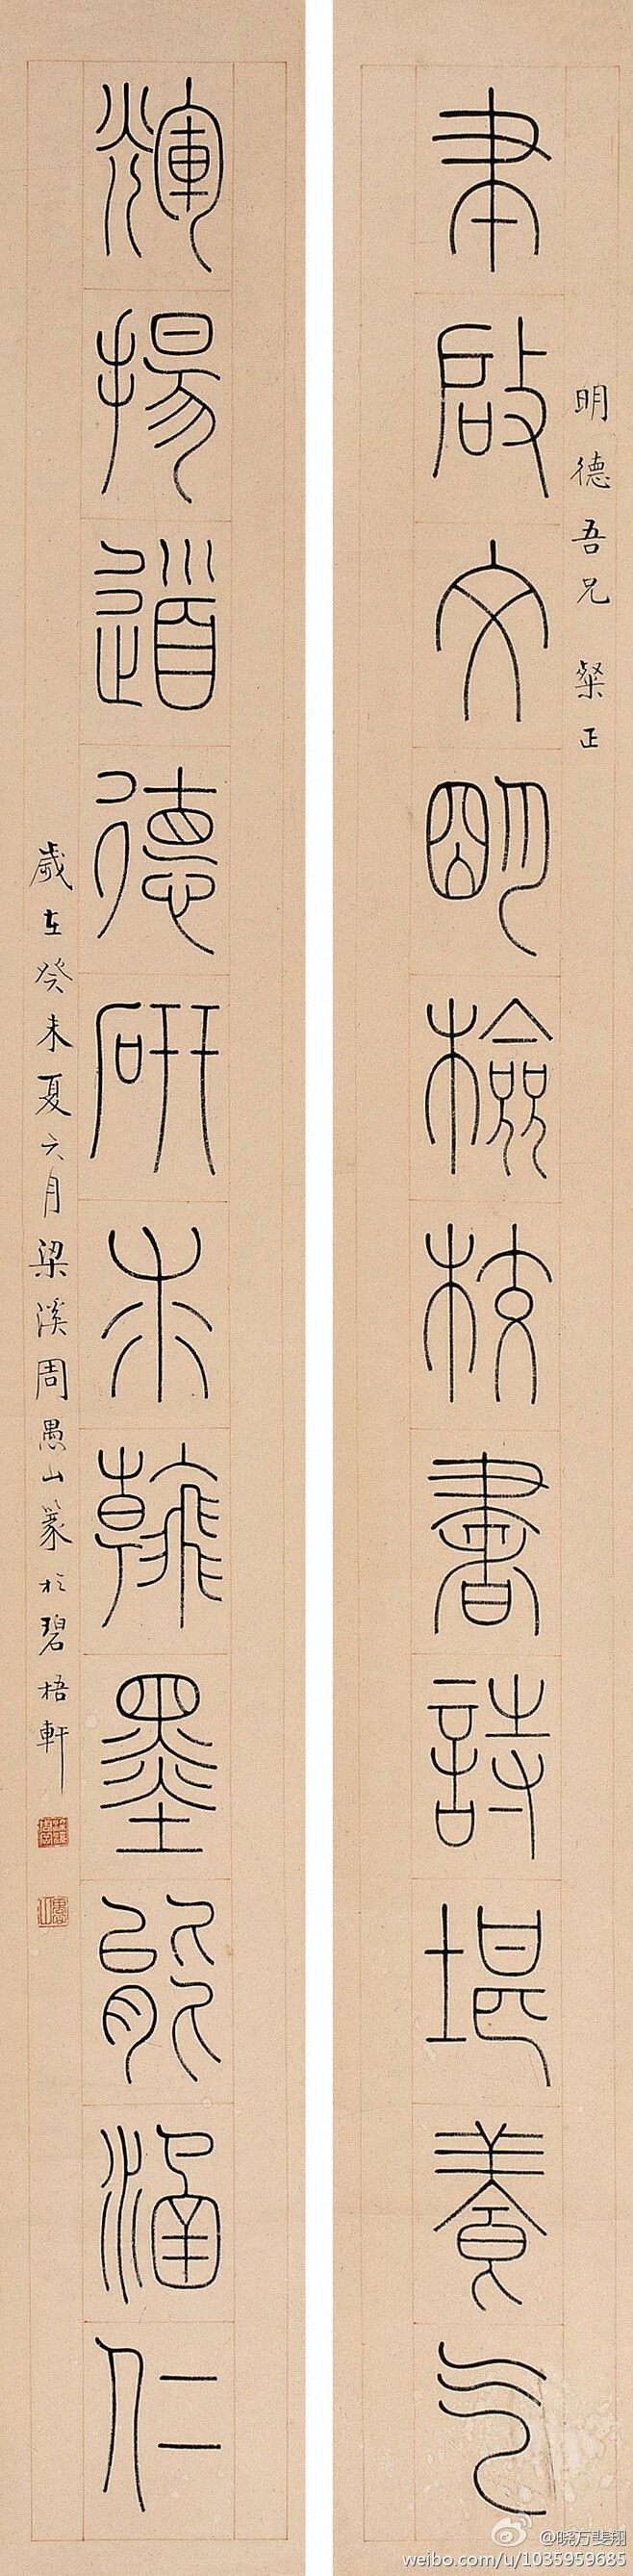 明德吾兄 粲正
聿啟文明檢校書詩堪養气
煇揚道德研朱翰墨能涵仁
歲在癸未夏六月梁溪周愚山篆於碧梧軒
@晓万斐翔
weibo.com/u/1035959685